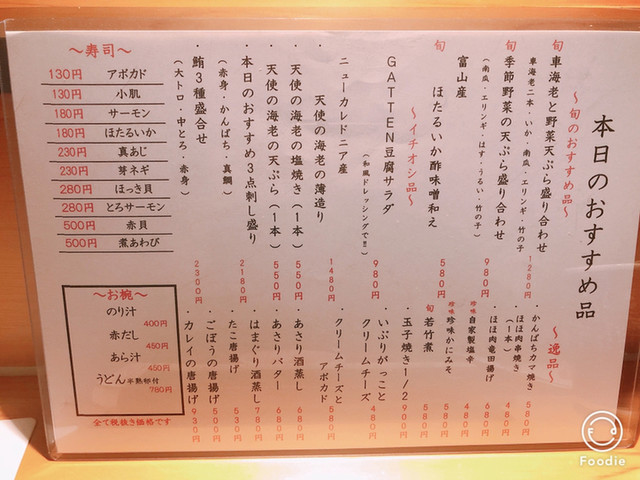 本日のおすすめ品
〜旬のおすすめ品〜
旬 車海老と野菜天ぷら盛り合わせ 1280円
車海老二本・いか・南瓜・エリンギ・竹の子
旬 季節野菜の天ぷら盛り合わせ 980円
(南瓜・エリンギ・はす・うるい・竹の子)
富山産
旬 ほたるいか酢味噌和え 580円
〜イチオシ品〜
GATTEN豆腐サラダ 980円
(和風ドレッシングで!!)
ニューカレドニア産
・天使の海老の薄造り 1480円
・天使の海老の塩焼き(1本) 550円
・天使の海老の天ぷら(1本) 550円
・本日のおすすめ3点刺し盛り 2180円
(赤身・かんぱち・真鯛)
・鮪3種盛合せ 2300円
(大トロ・中とろ・赤身)
〜逸品〜
・かんぱちカマ焼き 580円
・ほほ肉串焼き 480円
(1本)
・ほほ肉竜田揚げ 680円
珍味 自家製塩辛 480円
珍味 珍味かにみそ 580円
旬 若竹煮 580円
・玉子焼き1/2 900円
・いぶりがっこと
クリームチーズ 480円
クリームチーズと
アボカド 580円
・あさり酒蒸し 680円
・あさりバター 680円
・はまぐり酒蒸し 780円
・たこ唐揚げ 530円
・ごぼうの唐揚げ 500円
・カレイの唐揚げ 930円
〜寿司〜
130円 アボカド
130円 小肌
180円 サーモン
180円 ほたるいか
230円 真あじ
230円 芽ネギ
280円 ほっき貝
280円 とろサーモン
500円 赤貝
500円 煮あわび
〜お椀〜
のり汁
400円
赤だし
450円
あら汁
450円
うどん 半熟卵付
780円
全て税抜き価格です
Foodie